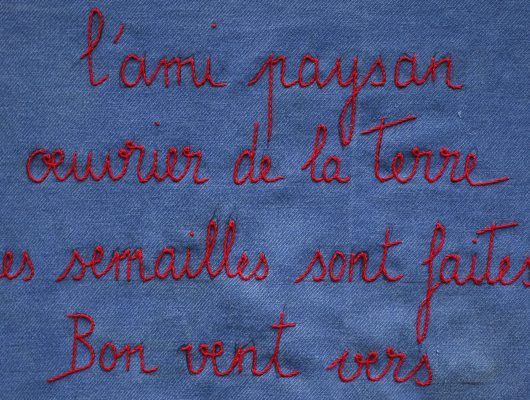 l'ami paysan
œuvrier de la Terre
es semailles sont faites
Bon vent vers